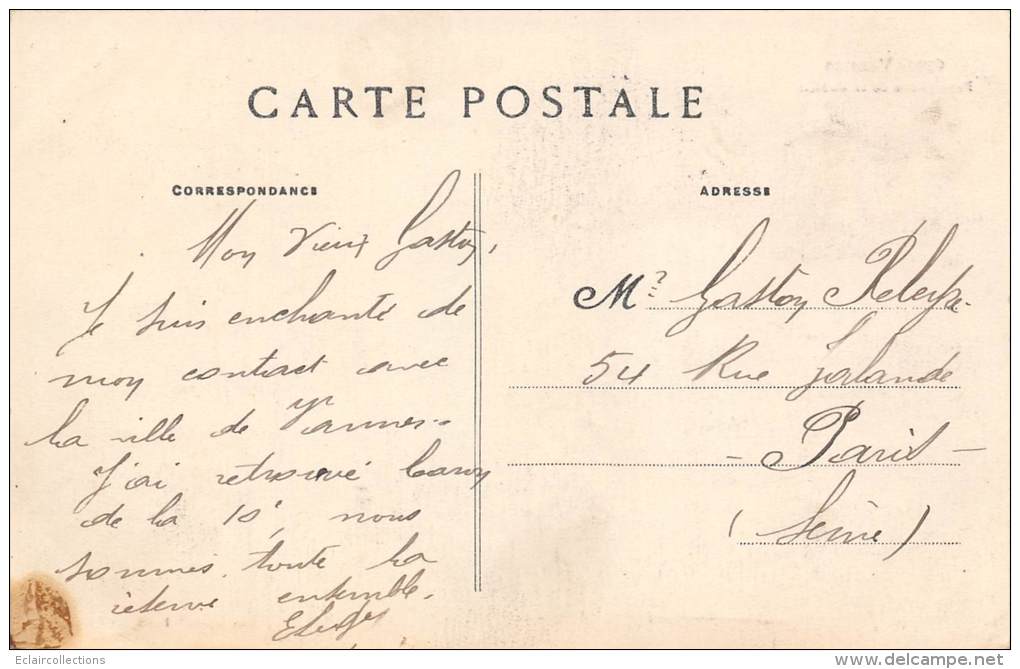 CARTE POSTALE
CORRESPONDANCE
Mon Vieux Gaston,
Je suis enchanté de
mon contact avec
la ville de Vannes..
J'ai retrouvé
de la 10e, nous
sommes toute la
réserve ensemble.
ADRESSE
Mr Gaston
54 Rue Jalande
- Paris -
(Seine)
Eclaircollections
www.delcampe.net